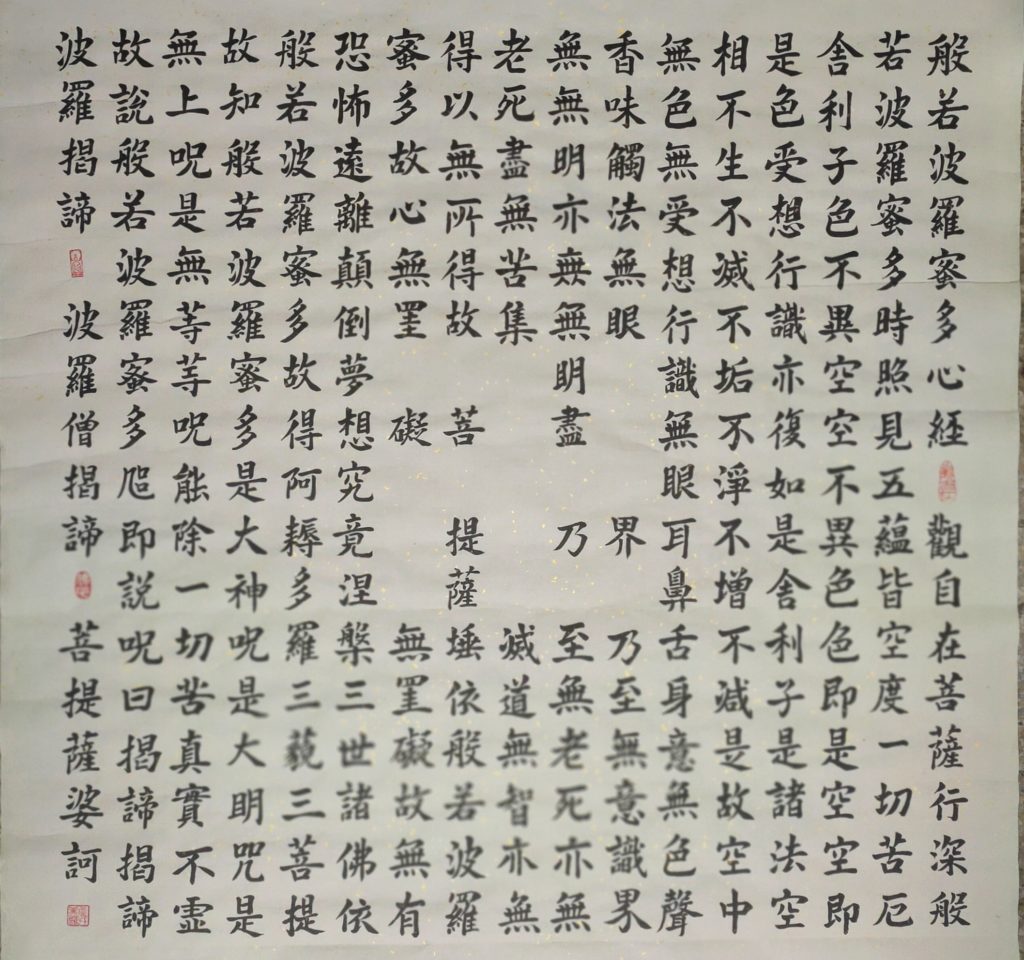 般若波羅蜜多心經 觀自在菩薩行深般
若波羅蜜多時照見五蘊皆空度一切苦厄
舍利子色不異空空不異色色即是空空即
是色受想行識亦復如是舍利子是諸法空
相不生不滅不垢不淨不增不減是故空中
無色無受想行識無眼耳鼻舌身意無色聲
香味觸法無眼 界 乃至無意識界
無無明亦無無明盡 乃 至無老死亦無
老死盡無苦集 滅道無智亦無
得以無所得故 菩 提薩埵依般若波羅
蜜多故心無罣 礙 無罣礙故無有
恐怖遠離顛倒夢想究竟涅槃三世諸佛依
般若波羅蜜多故得阿耨多羅三藐三菩提
故知般若波羅蜜多是大神呪是大明咒是
無上呪是無等等呪能除一切苦真實不虛
故說般若波羅蜜多呪即説呪曰揭諦揭諦
波羅揭諦 波羅僧揭諦 菩提薩婆訶